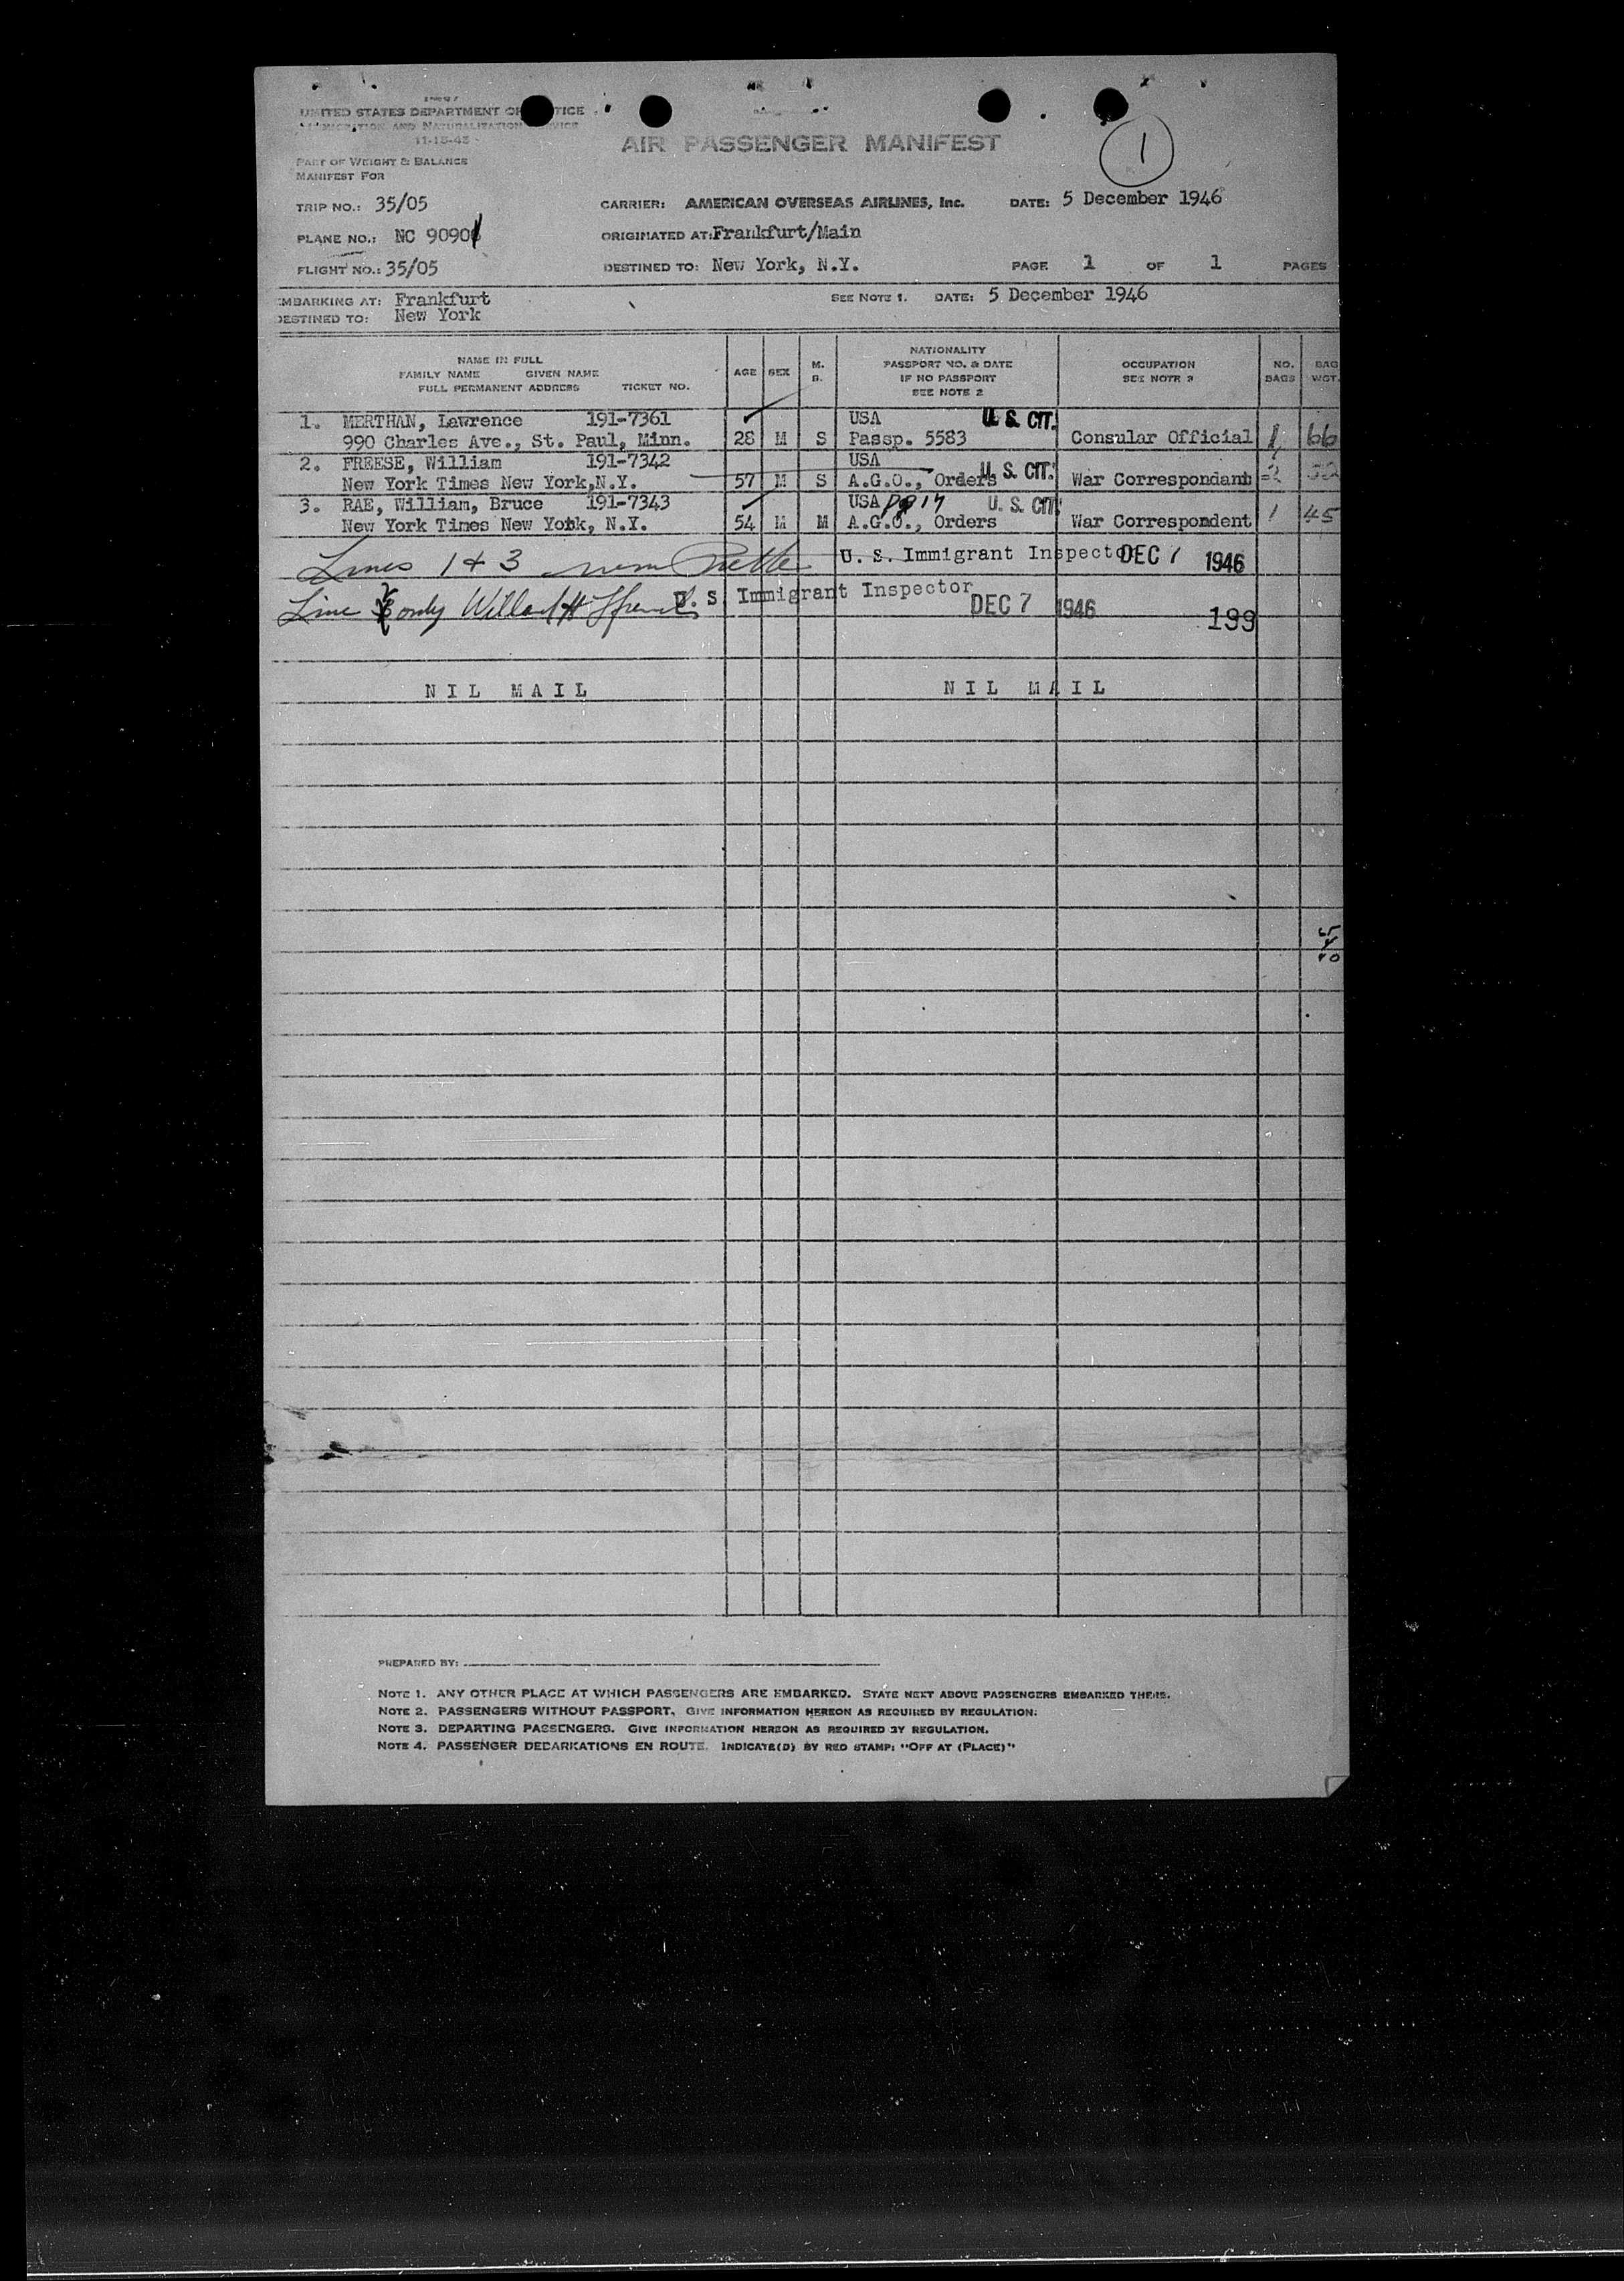 UNITED STATES DEPARTMENT OF JUSTICE
IMMIGRATION AND NATURALIZATION SERVICE
11-15-43
AIR PASSENGER MANIFEST
1
PART OF WEIGHT & BALANCE
MANIFEST FOR
TRIP NO.: 35/05 CARRIER: AMERICAN OVERSEAS AIRLINES, Inc. DATE: 5 December 1946
PLANE NO.: NC 90901 ORIGINATED AT: Frankfurt/Main
FLIGHT NO.: 35/05 DESTINED TO: New York, N.Y. PAGE 1 OF 1 PAGES
EMBARKING AT: Frankfurt SEE NOTE 1. DATE: 5 December 1946
DESTINED TO: New York
NAME IN FULL
FAMILY NAME GIVEN NAME
FULL PERMANENT ADDRESS TICKET NO.
AGE SEX M. S.
NATIONALITY
PASSPORT NO. & DATE
IF NO PASSPORT
SEE NOTE 2
OCCUPATION
SEE NOTE 3
NO. BAGS
BAG WGT.
1. MERTHAN, Lawrence 191-7361 USA U. S. CIT.
990 Charles Ave., St. Paul, Minn. 28 M S Passp. 5583 Consular Official 1 66
2. FREESE, William 191-7342 USA U. S. CIT.
New York Times New York,N.Y. 57 M S A.G.O., Orders War Correspondant 2
3. RAE, William, Bruce 191-7343 USA U. S. CIT.
New York Times New York, N.Y. 54 M M A.G.O., Orders War Correspondent 1 45
Lines 1 & 3 U. S. Immigrant Inspector DEC 7 1946
Line only U. S. Immigrant Inspector DEC 7 1946
199
NIL MAIL NIL MAIL
PREPARED BY:
NOTE 1. ANY OTHER PLACE AT WHICH PASSENGERS ARE EMBARKED. STATE NEXT ABOVE PASSENGERS EMBARKED THERE.
NOTE 2. PASSENGERS WITHOUT PASSPORT. GIVE INFORMATION HEREON AS REQUIRED BY REGULATION.
NOTE 3. DEPARTING PASSENGERS. GIVE INFORMATION HEREON AS REQUIRED BY REGULATION.
NOTE 4. PASSENGER DEBARKATIONS EN ROUTE. INDICATE(D) BY RED STAMP: "OFF AT (PLACE)"